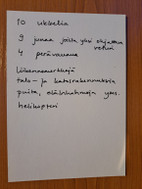 10 ukkelia
9 junaa joista yksi ohjattava
veturi
4 perävaunua
Liikennemerkkejä
talo- ja katosrakennuksia
puita, eläinhahmoja yms.
helikopteri